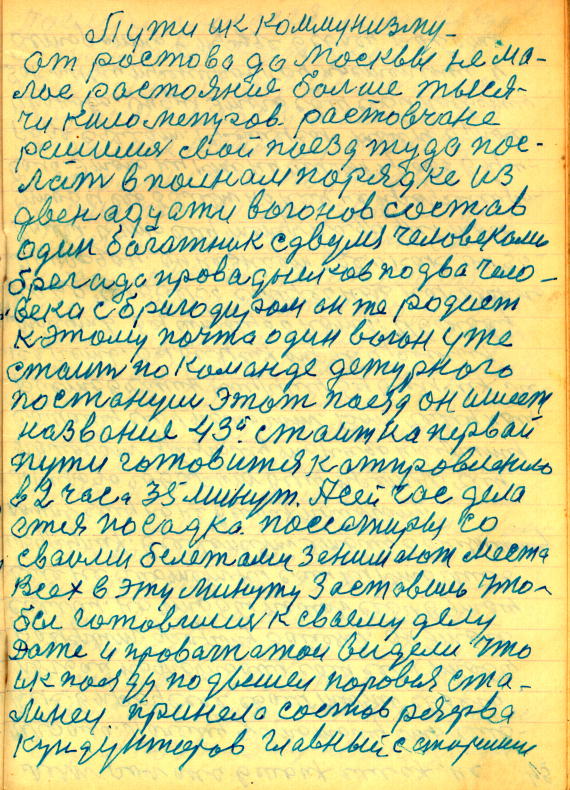 Пути ик коммунизму
от ростова до Москвы не ма-
лое растояние болше тыся-
чи километров растовчане
решили свой поезд туда пос-
лать в полнам порядке из
двенадцати вогонов состав
один богажник сдвумя человеками
брегада провадников подва чело-
века с бригодиром он же родист
К этому почта один вогон уже
стоит по команде дежурного
постанции Этот поезд он имеет
название 43й стоит на первай
пути готовится к атправлению
в 2 часа 35 минут. Асей час дела
ется посадка. поссажиры со
своими белетами занимают места
Всех в эту минуту Заставили что-
бы готовились к своему делу
Даже и проважатаи видели что
ик поязду подъшел поровоз ста-
линец принела состав резерва
Кундукторов главный с старшим